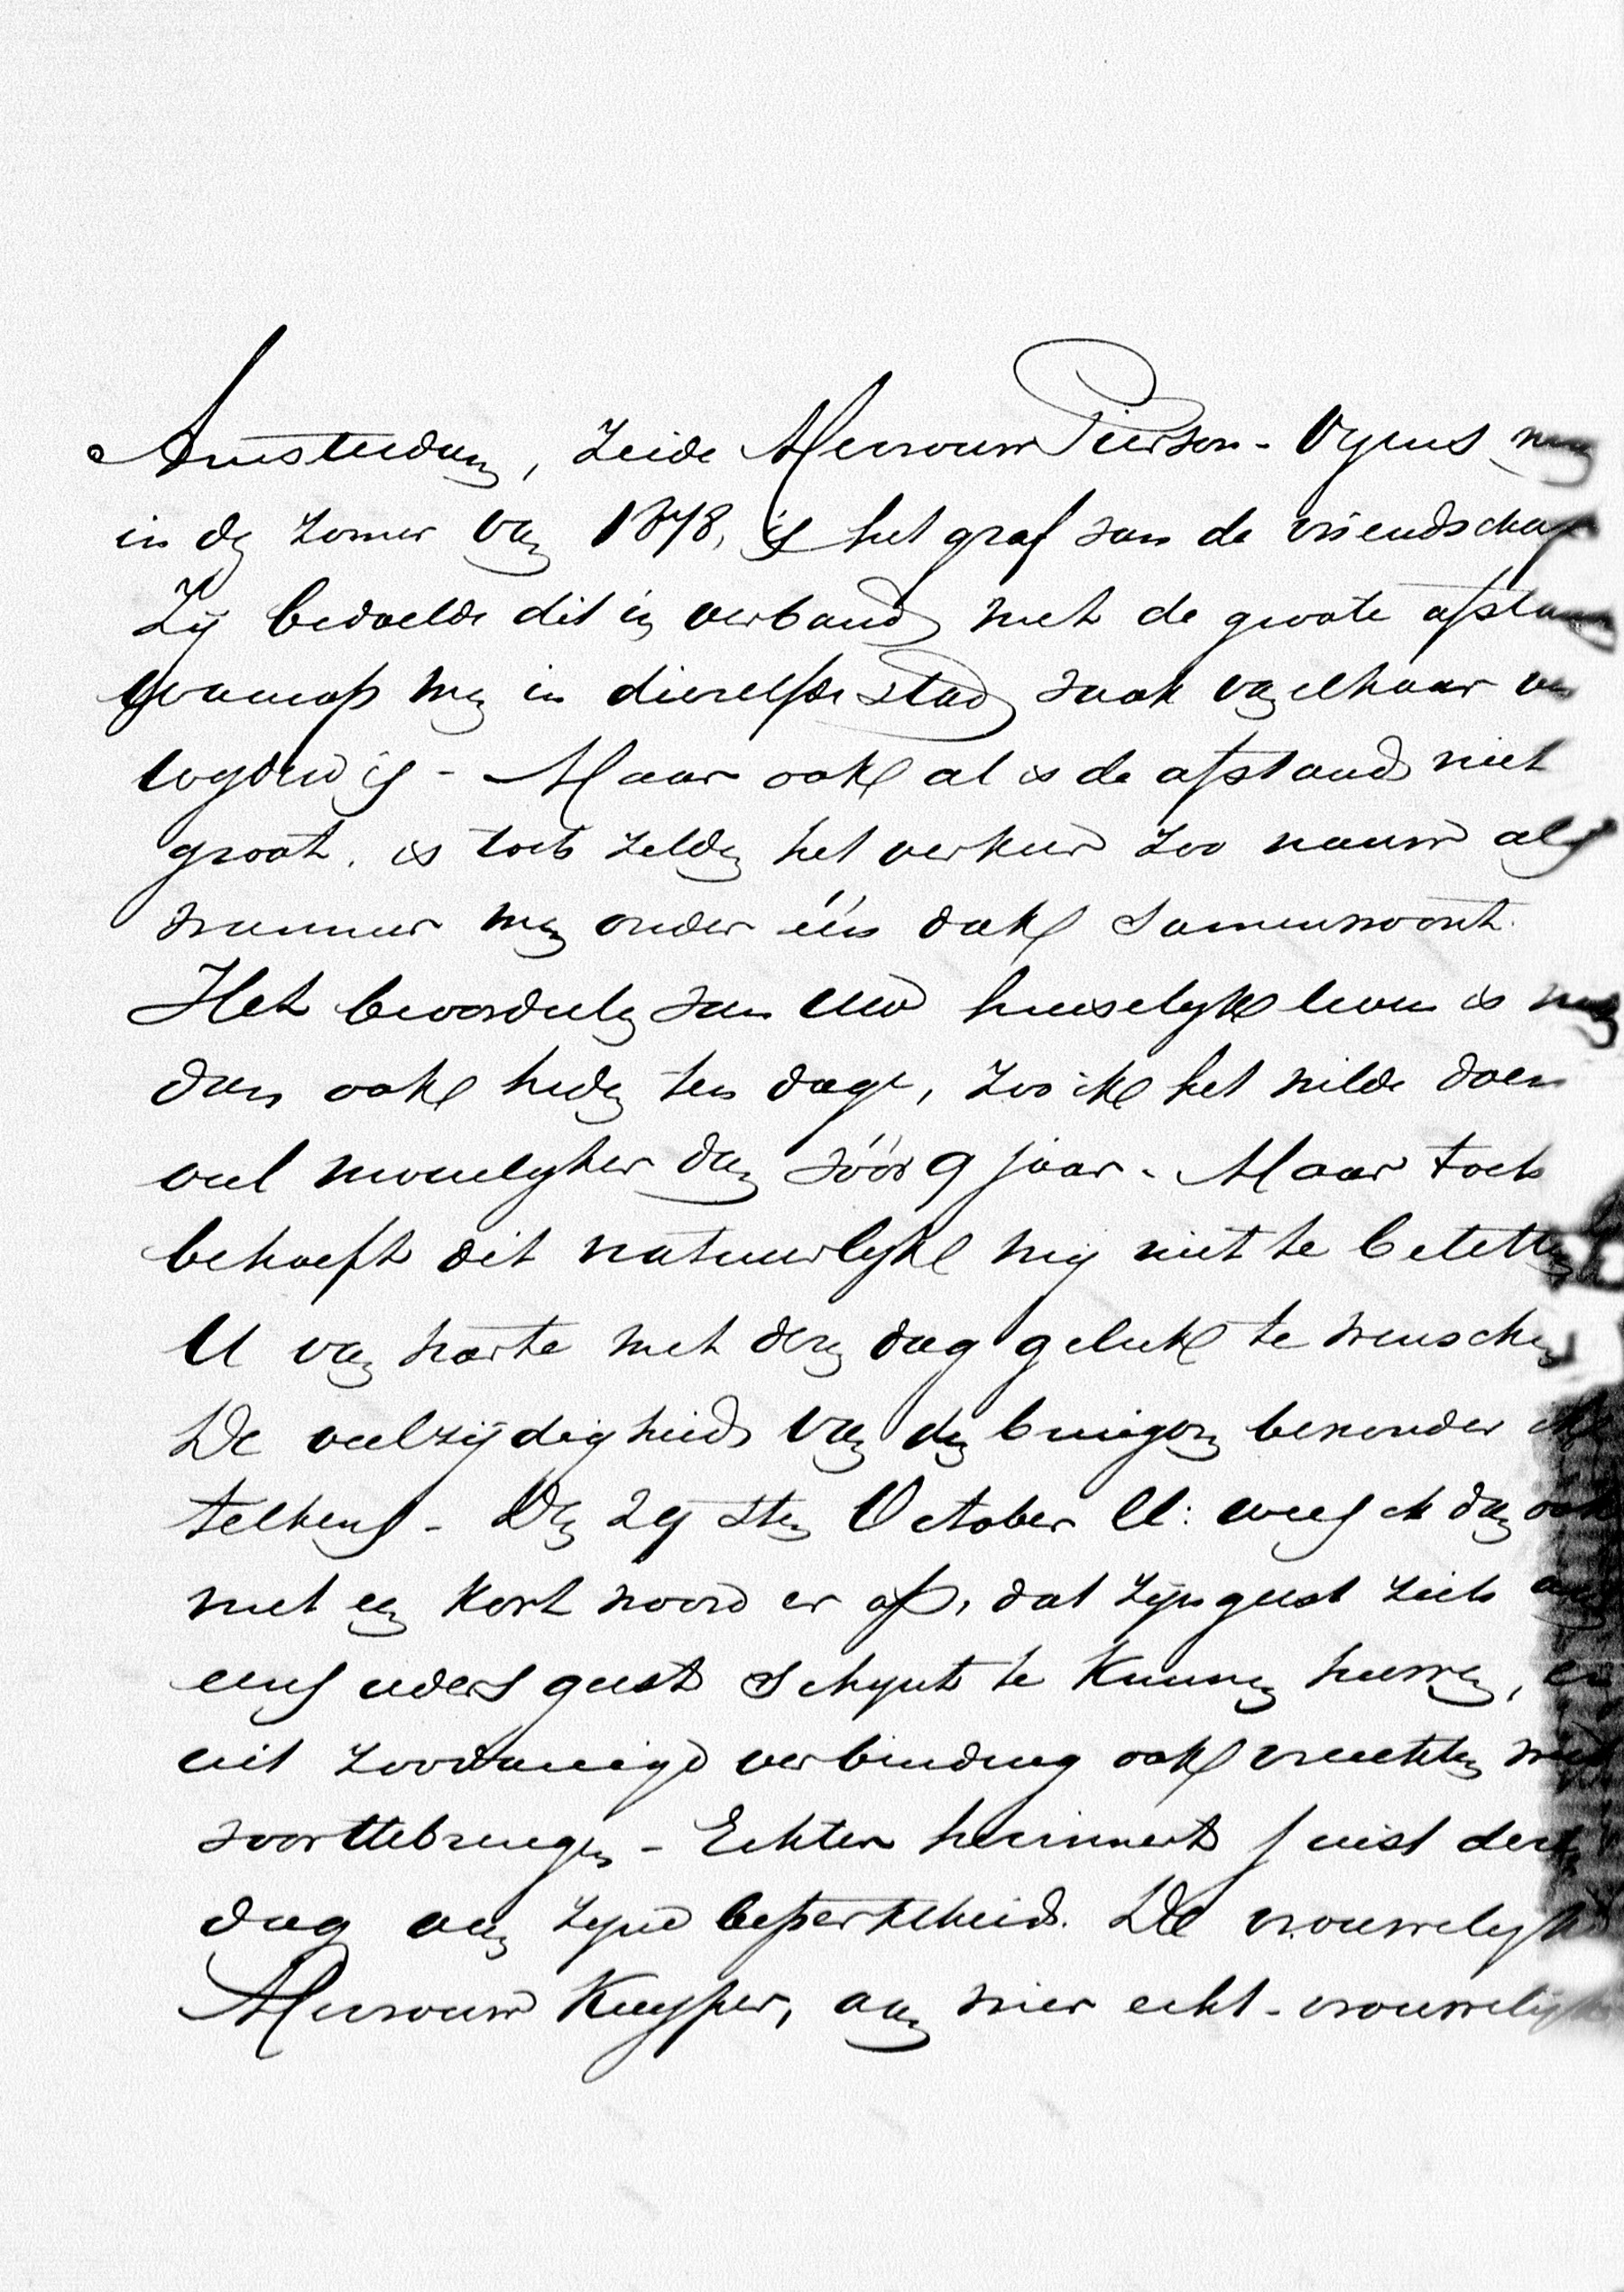 Amsterdam, zeide Mevrouw Pierson-Oyens mij
in den zomer van 1878, is het graf van de vriendschap
Zij bedoelde dit in verband met de groote afstand
waarop men in diezelfde stad vaak van elkaar
is - Maar ook al is de afstand niet
groot, is toch zelden het verkeer zoo nauw als
wanneer men onder één dak samenwoont.
Het beoordeelen van Uw huiselijk leven is mij
dan ook heden ten dage, zoo ik het wilde doen
veel moeielijker dan vóór 9 jaar. Maar toch
behoeft dit natuurlijk mij niet te beletten
U van harte met dezen dag geluk te wenschen
De veelzijdigheid van den bewonder ik
telkens - Den 29sten October ll: wees ik dan ook
met een kort woord er op, dat zijn geest zich aan
eens ieders geest schijnt te kunnen huwen, en
uit zoodanige verbinding ook vruchten weet
voorttebrengen - Echter herinnert juist dezen
dag aan zijne beperktheid. De vrouwelijke
Mevrouw Kuyper, aan wier echt-vrouwelijke